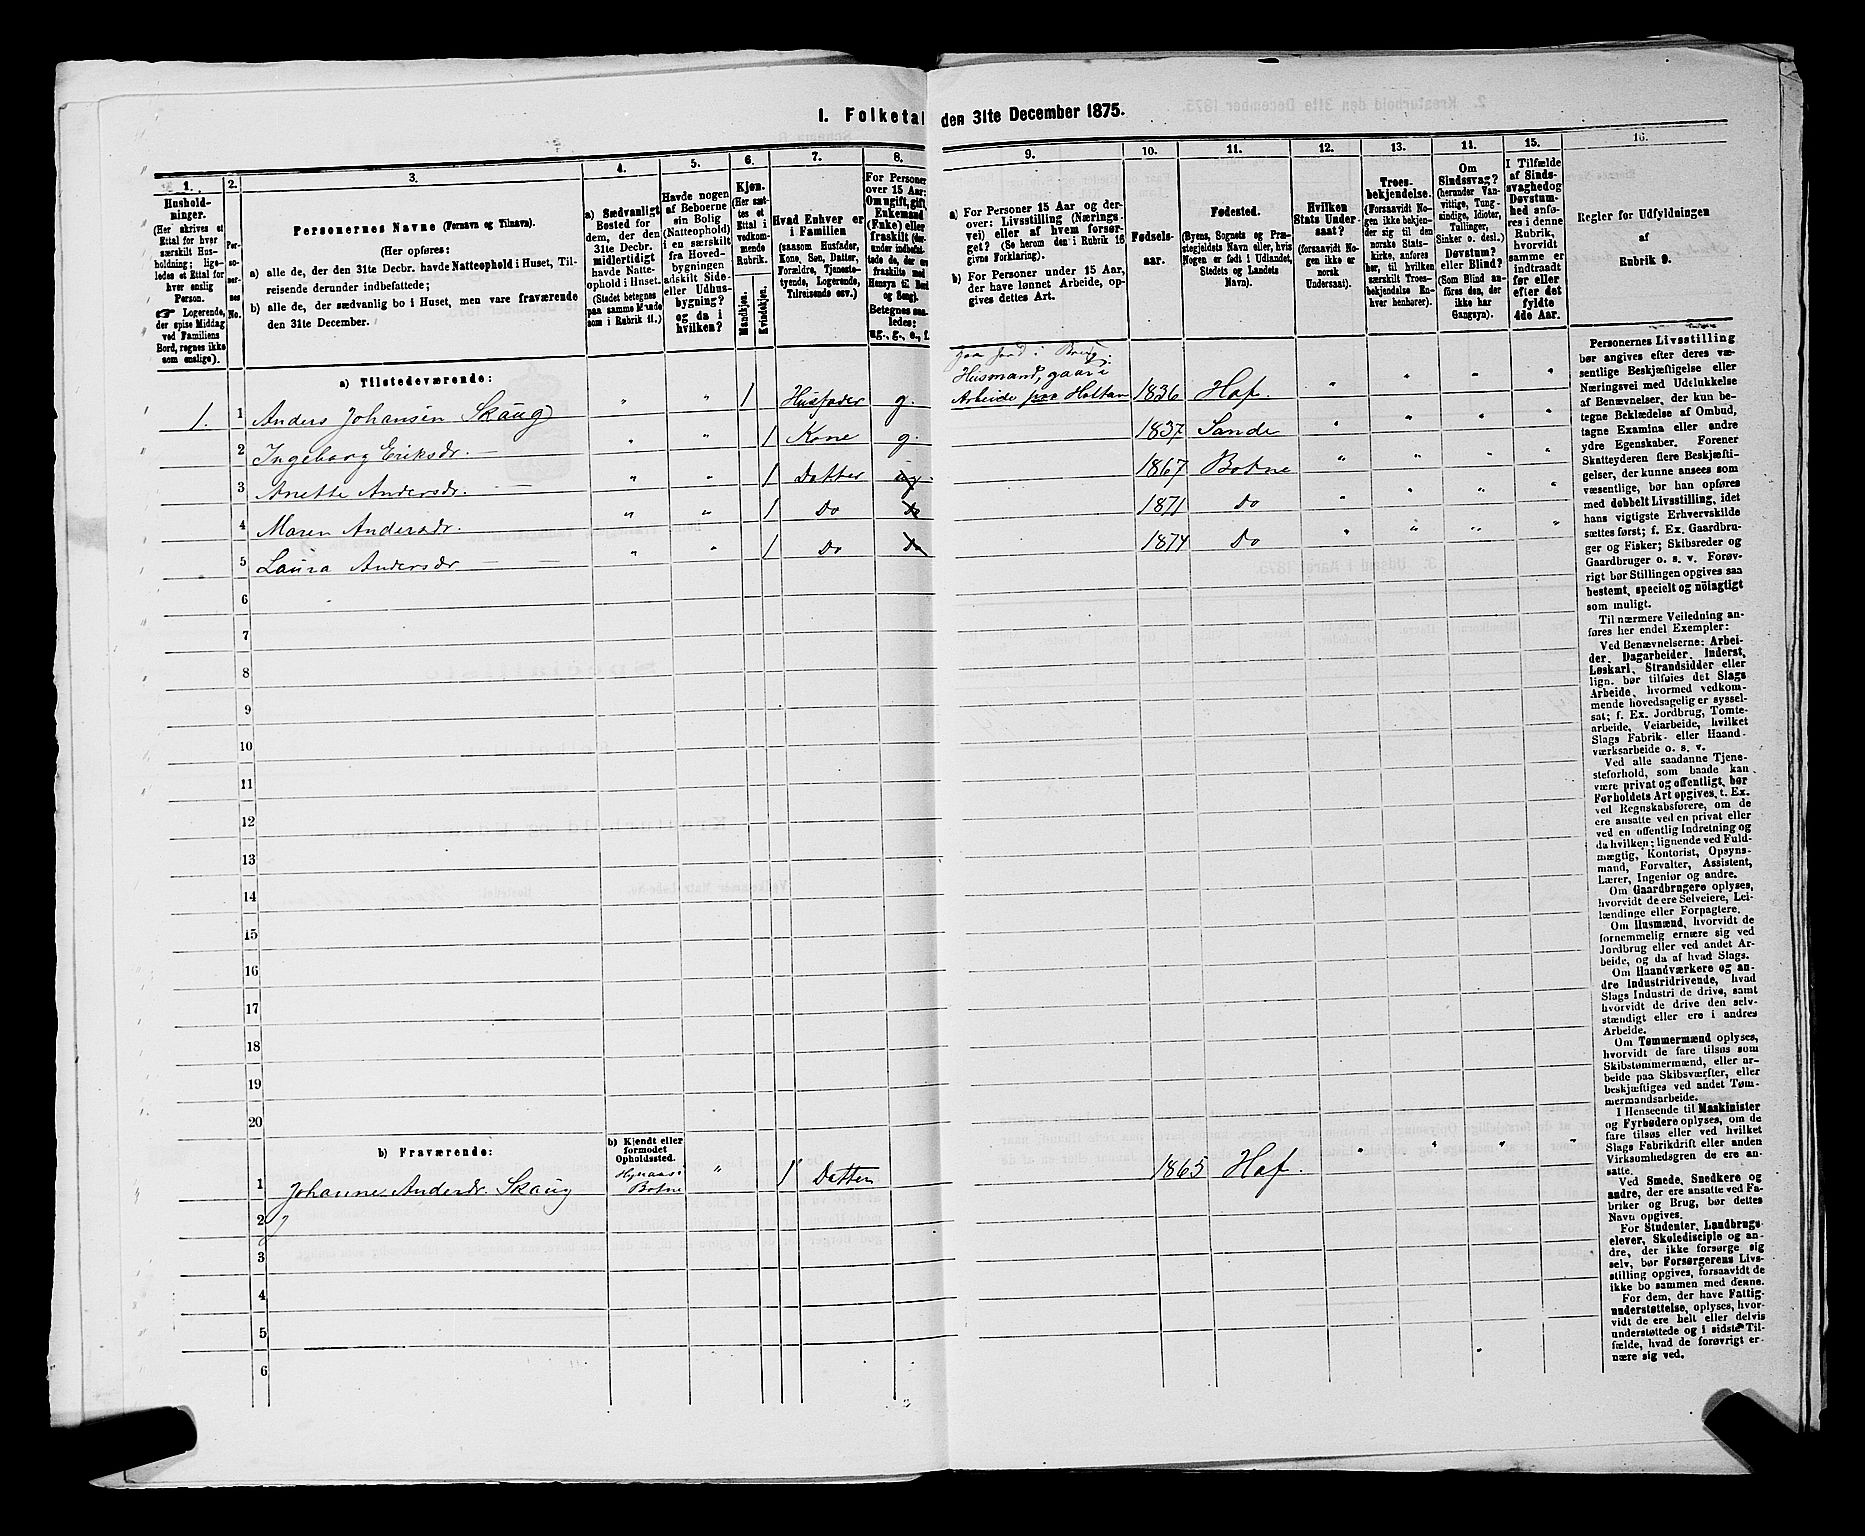 I. Folketal
den 31te December 1875.
1.
Hushold-
ninger.
(Her skrives et
Ettal for hver
særskilt Hus-
holdning; lige-
ledes et Ettal for
hver enslig
Person.
☞ Logerende,
der spise Middag
ved Familiens
Bord, regnes ikke
som enslige).
2.
Per-
so-
ner-
nes
No.
3.
Personernes Navne (Fornavn og Tilnavn).
(Her opføres:
a) alle de, der den 31te Decbr. havde Natteophold i Huset, Til-
reisende derunder indbefattede;
b) alle de, der sædvanlig bo i Huset, men vare fraværende
den 31te December.
4.
a) Sædvanligt
Bosted for
dem, der den
31te Decbr.
midlertidigt
havde Natte-
ophold i Huset.
(Stedet betegnes
paa samme Maade
som i Rubrik 11.)
5.
Havde nogen
af Beboerne
sin Bolig
(Natteophold)
i en særskilt
fra Hoved-
bygningen
adskilt Side-
eller Udhus-
bygning?
og da i
hvilken?
6.
Kjøn.
(Her sæt-
tes et
Ettal i
vedkom-
mende
Rubrik.
Mandkjøn.
Kvindekjøn.
7.
Hvad Enhver er
i Familien
(saasom Husfader,
Kone, Søn, Datter,
Forældre, Tjeneste-
tyende, Logerende,
Tilreisende osv.)
8.
For Personer
over 15 Aar:
Om ugift, gift,
Enkemand
(Enke) eller
fraskilt (der-
under indbefat-
tede de, der ere
fraskilte med
Hensyn til Bord
og Seng).
Betegnes saa-
ledes:
ug., g., e., f.
9.
a) For Personer 15 Aar og der-
over: Livsstilling (Nærings-
vei) eller af hvem forsør-
get? (Se herom den i Rubrik 16
givne Forklaring).
b) For Personer under 15 Aar,
der have lønnet Arbeide, op-
gives dettes Art.
10.
Fødsels-
aar.
11.
Fødested.
(Byens, Sognets og Præ-
stegjeldets Navn eller, hvis
Nogen er født i Udlandet,
Stedets og Landets
Navn).
12.
Hvilken
Stats Under-
saat?
(forsaavidt No-
gen ikke er
norsk
Undersaat).
13.
Troes-
bekjendelse.
(Forsaavidt No-
gen ikke bekjen-
der sig til den
norske Stats-
kirke, anføres
her, til hvilken
særskilt Troes-
bekjendelse En-
hver henhører).
14.
Om
Sindssvag?
(herunder Van-
vittige, Tung-
sindige, Idioter,
Tullinger,
Sinker o. desl.)
Døvstum?
eller Blind?
(Som Blind an-
føres den, der
ikke har
Gangsyn).
15.
I Tilfælde
af Sinds-
svaghed og
Døvstum-
hed anfø-
res i denne
Rubrik,
hvorvidt
samme er
indtraadt
før eller
efter det
fyldte
4de Aar.
16.
Regler for Udfyldningen
af
Rubrik 9.
a) Tilstedeværende:
1. 1 Anders Johansen Skaug " " 1 Husfader g. Husmand, gaar i Arbeide paa Holtan 1836 Hof. " " " "
2 Ingeborg Eriksdr. — " " 1 Kone g. 1837 Sande " " " "
3 Anette Andersdr. — " " 1 Datter ug. 1867 Botne " " " "
4 Maren Andersdr. " " 1 Do Do 1871 Do " " " "
5 Laura Andersdr — — " " 1 Do Do 1874 Do " " " "
6
7
8
9
10
11
12
13
14
15
16
17
18
19
20
b) Fraværende:
b) Kjendt eller
formodet
Opholdssted.
1 Johanne Andersdr. Skaug Botne " 1 Datter 1865 Hof. " " " "
2
3
4
5
6
Personernes Livsstilling
bør angives efter deres væ-
sentlige Beskjæftigelse eller
Næringsvei med Udelukkelse
af Benævnelser, der kun be-
tegne Beklædelse af Ombud,
tagne Examina eller andre
ydre Egenskaber. Forener
Skatteyderen flere Beskjæfti-
gelser, der kunne ansees som
væsentlige, bør han opføres
med dobbelt Livsstilling, idet
hans vigtigste Erhvervskilde
sættes først; f. Ex. Gaardbru-
ger og Fisker; Skibsreder og
Gaardbruger o. s. v. Forøv-
rigt bør Stillingen opgives saa
bestemt, specielt og nøiagtigt
som muligt.
Til nærmere Veiledning an-
føres her endel Exempler:
Ved Benævnelserne: Arbei-
der, Dagarbeider, Inderst,
Løskarl, Strandsidder eller
lign. bør tilføies det Slags
Arbeide, hvormed vedkom-
mende hovedsagelig er syssel-
sat; f. Ex. Jordbrug, Tomte-
arbeide, Veiarbeide, hvilket
Slags Fabrik- eller Haand-
værksarbeide o. s. v.
Ved alle saadanne Tjene-
steforhold, som baade kan
være privat og offentligt, bør
Forholdets Art opgives, t. Ex.
ved Regnskabsførere, om de
ere ansatte ved en privat eller
ved en offentlig Indretning og
da hvilken; lignende ved Fuld-
mægtig, Kontorist, Opsyns-
mand, Forvalter, Assistent,
Lærer, Ingeniør og andre.
Om Gaardbrugere oplyses,
hvorvidt de ere Selveiere, Lei-
lændinge eller Forpagtere.
Om Husmænd, hvorvidt de
fornemmelig ernære sig ved
Jordbrug eller ved andet Ar-
beide, og da af hvad Slags.
Om Haandværkere og an-
dre Industridrivende, hvad
Slags Industri de drive, samt
hvorvidt de drive den selv-
stændigt eller ere i andres
Arbeide.
Om Tømmermænd oplyses,
hvorvidt de fare tilsøs som
Skibstømmermænd, eller ar-
beide paa Skibsværfter, eller
beskjæftiges ved andet Tøm-
mermandsarbeide.
I Henseende til Maskinister
og Fyrbødere oplyses, om de
fare tilsøs eller ved hvilket
Slags Fabrikdrift eller anden
Virksomhedsgren de ere an-
satte.
Ved Smede, Snedkere og
andre, der ere ansatte ved Fa-
briker og Brug, bør dettes
Navn opgives.
For Studenter, Landbrugs-
elever, Skoledisciple og an-
dre, der ikke forsørge sig
selv, bør Forsørgerens Livs-
stilling opgives, forsaavidt de
ikke bo sammen med denne.
For dem, der have Fattig-
understøttelse, oplyses, hvor-
vidt de ere helt eller delvis
understøttede og i sidste Til-
fælde, hvad de forøvrigt er-
nære sig ved.